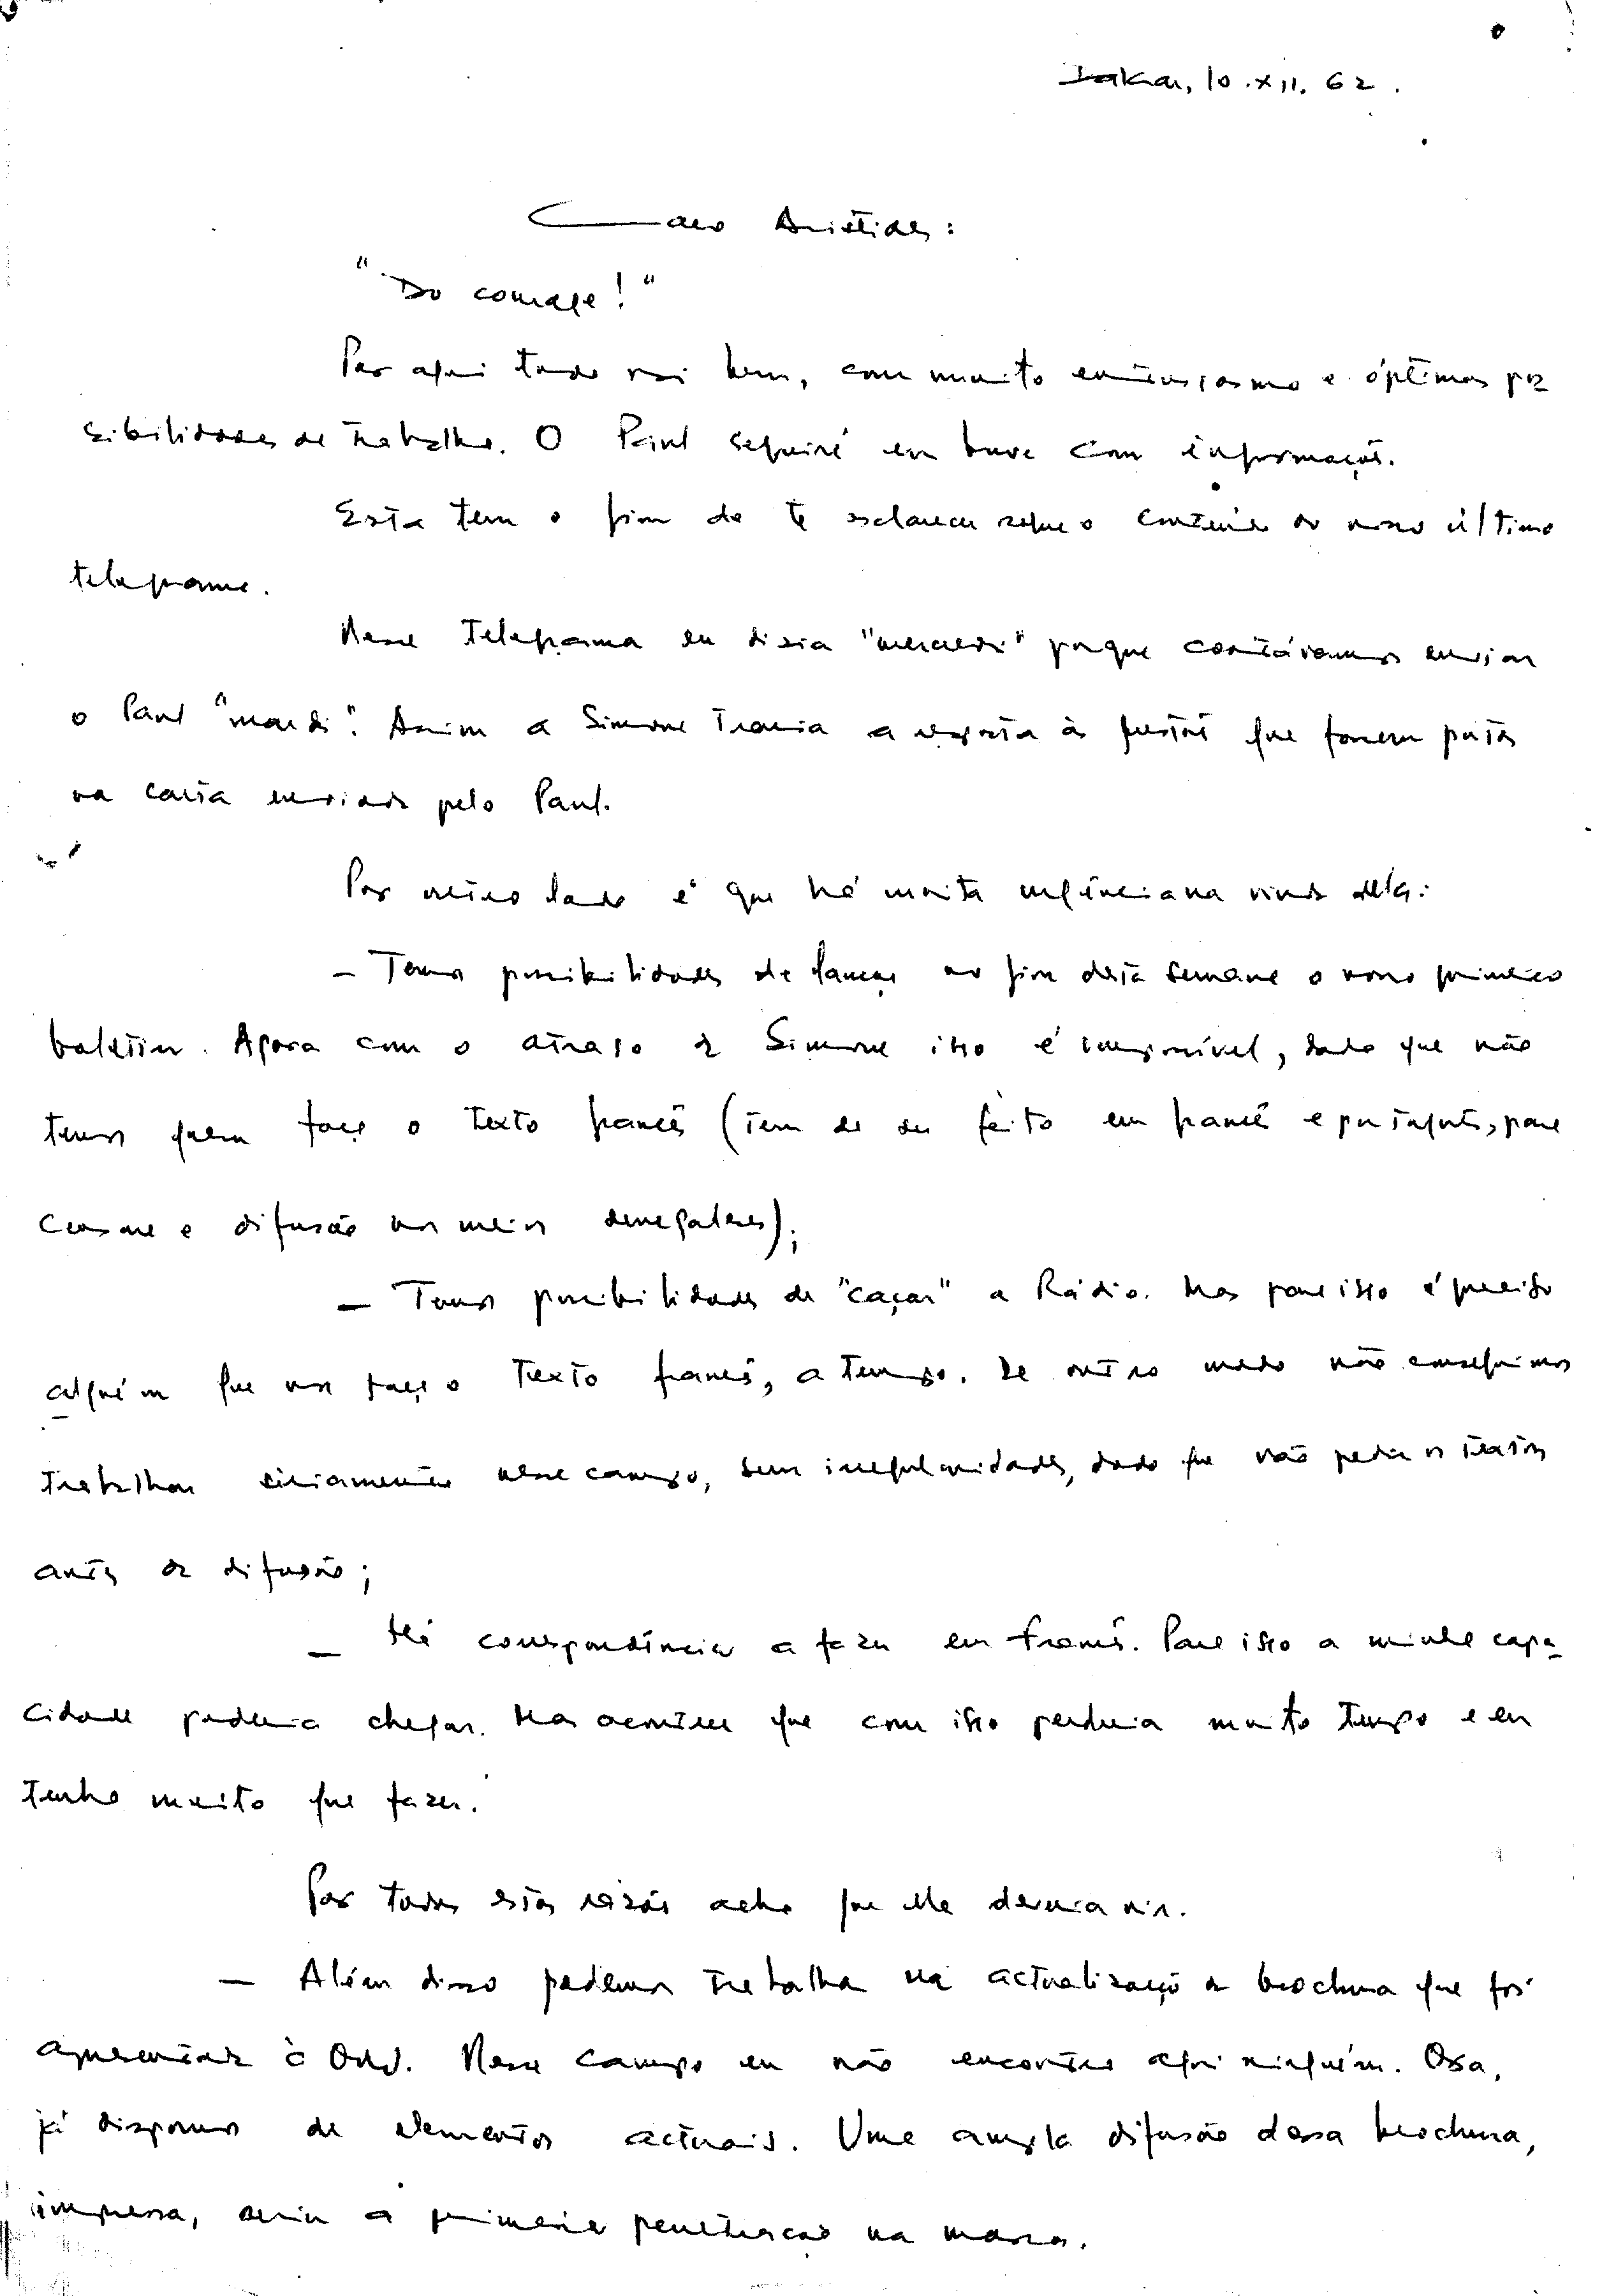 Dakar, 10.XII.62.
Caro Aristides:
"Du courage!"
Por aqui tudo vai bem, com muito entusiasmo e óptimas pos
sibilidades de trabalho. O Paul seguirá em breve com informações.
Esta tem o fim de te esclarecer sobre o conteúdo do nosso último
telegrama.
Nesse telegrama eu dizia "mercredi" porque contávamos enviar
o Paul "mardi". Assim a Simone traria a resposta às questões que fossem postas
na carta enviada pelo Paul.
Por outro lado é que há muita urgência na vinda dela:
— Temos possibilidades de lançar no fim desta semana o nosso primeiro
boletim. Agora com o atraso da Simone isso é impossível, dado que não
temos quem faça o texto francês (tem de ser feito em francês e português, para
censura e difusão nos meios senegaleses);
— Temos possibilidades de "caçar" a Rádio. Mas para isso é preciso
alguém que nos faça o texto francês, a tempo. De outro modo não conseguimos
trabalhar seriamente nesse campo, sem irregularidades, dado que vão pedir os textos
antes da difusão;
— Há correspondência a fazer em francês. Para isso a minha capa-
cidade poderia chegar. Mas acontece que com isso perderia muito tempo e eu
tenho muito que fazer.
Por todas estas razões acho que ela deveria vir.
— Além disso podemos trabalhar na actualização da brochura que foi
apresentada à ONU. Nesse campo eu não encontro aqui ninguém. Ora,
já dispomos de elementos actuais. Uma ampla difusão dessa brochura,
impressa, seria a primeira penetração na massa.